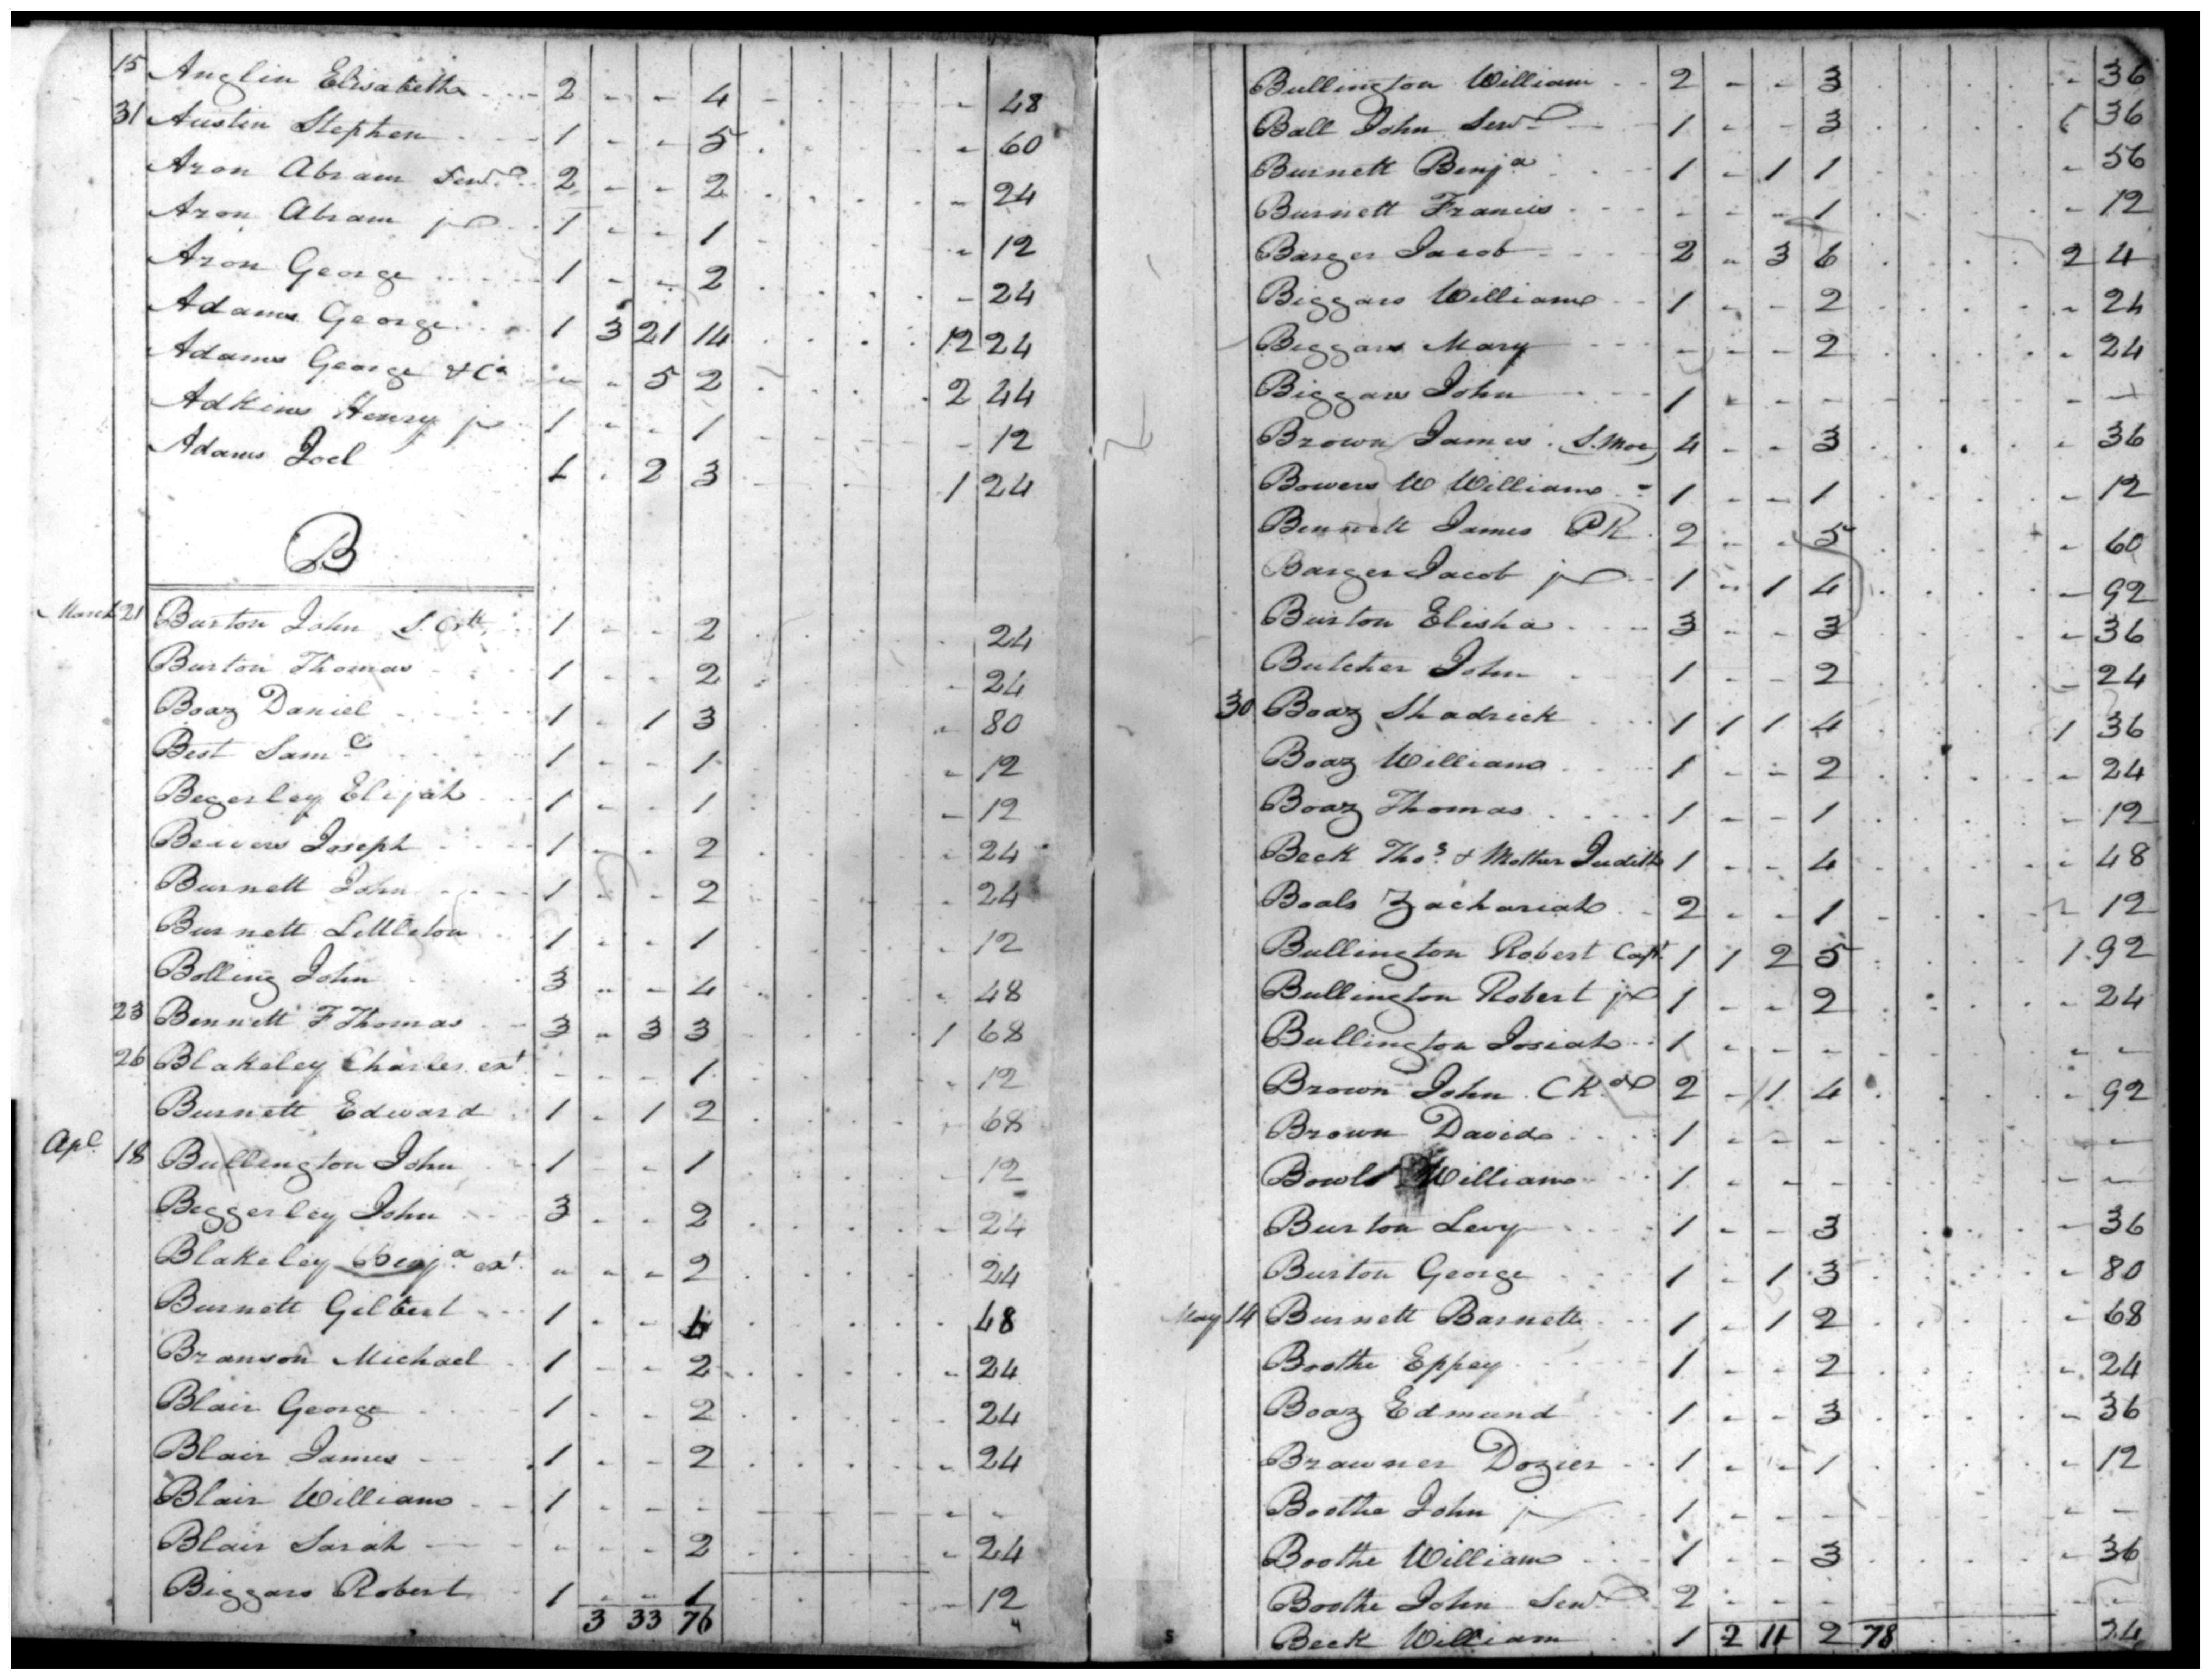 15 Anglin Elisabeth 2 - - 4 - - 48
31 Austin Stephen 1 - - 5 - 60
Aron Abram Senr. 2 - - 2 - 24
Aron Abram jr 1 - - 1 - 12
Aron George 1 - - 2 - 24
Adams George 1 3 21 14 12 24
Adams George & Co - - 5 2 2 44
Adkins Henry jr 1 - - 1 - 12
Adams Joel 1 - 2 3 1 24
B
March 21 Burton John S. Crk 1 - - 2 - 24
Burton Thomas 1 - - 2 - 24
Boaz Daniel 1 - 1 3 - 80
Best Saml 1 - - 1 - 12
Begerley Elijah 1 - - 1 - 12
Beavers Joseph 1 - - 2 - 24
Burnett John 1 - - 2 - 24
Burnett Littleton 1 - - 1 - 12
Bolling John 3 - - 4 - 48
23 Bennett F Thomas 3 - 3 3 1 68
26 Blakeley Charles ext - - - 1 - 12
Burnett Edward 1 - 1 2 - 68
Apl 18 Bullington John 1 - - 1 - 12
Beggerley John 3 - - 2 - 24
Blakeley Benja ext - - - 2 24
Burnett Gilbert 1 - - 4 - 48
Branson Michael 1 - - 2 - 24
Blair George 1 - - 2 - 24
Blair James 1 - - 2 - 24
Blair William 1 - - - - -
Blair Sarah - - - 2 - 24
Biggars Robert 1 - - 1 - 12
3 33 76
Bullington William 2 - - 3 - 36
Ball John Senr 1 - - 3 36
Burnett Benja 1 - 1 1 - 56
Burnett Francis - - - 1 - 12
Barger Jacob 2 - 3 6 2 4
Biggars William 1 - - 2 - 24
Biggars Mary - - - 2 - 24
Biggars John 1 - - - - -
Brown James 4 - - 3 - 36
Bowers W William 1 - - 1 - 12
Bennett James PR 2 - - 5 - 60
Barger Jacob jr 1 - 1 4 - 92
Burton Elisha 3 - - 3 - 36
Butcher John 1 - - 2 - 24
30 Boaz Shadrick 1 1 1 4 1 36
Boaz William 1 - - 2 - 24
Boaz Thomas 1 - - 1 - 12
Beck Thos. & Mother Judith 1 - - 4 - 48
Boals Zachariah 2 - - 1 - 12
Bullington Robert Capt 1 1 2 5 1.92
Bullington Robert jr 1 - - 2 - 24
Bullington Josiah 1 - - - - -
Brown John CK 2 - 1 4 - 92
Brown David 1 - - - - -
Bowls William 1 - - - - -
Burton Levy 1 - - 3 - 36
Burton George 1 - 1 3 - 80
May 14 Burnett Barnett 1 - 1 2 - 68
Boothe Eppey 1 - - 2 - 24
Boaz Edmund 1 - - 3 - 36
Brawner Dozier 1 - - 1 - 12
Boothe John jr 1 - - - - -
Boothe William 1 - - 3 - 36
Boothe John Senr 2 - - - - -
Beck William 1 2 11 2 78 24